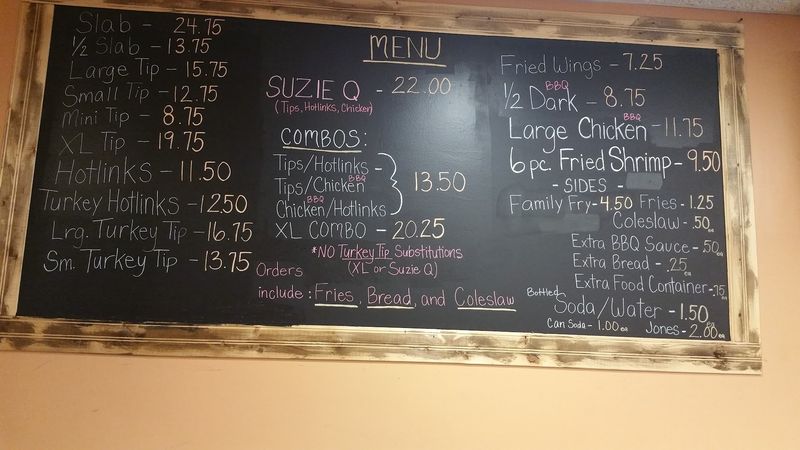 Slab - 24.75
1/2 Slab - 13.75
Large Tip - 15.75
Small Tip - 12.75
Mini Tip - 8.75
XL Tip - 19.75
Hotlinks - 11.50
Turkey Hotlinks - 12.50
Lrg. Turkey Tip - 16.75
Sm. Turkey Tip - 13.75
MENU
SUZIE Q - 22.00
(Tips, Hotlinks, Chicken)
COMBOS:
Tips/Hotlinks -
Tips/Chicken BBQ
Chicken/Hotlinks BBQ
13.50
XL COMBO - 20.25
*NO Turkey Tip Substitutions
(XL or Suzie Q)
Orders
include: Fries, Bread, and Coleslaw
Fried Wings - 7.25
1/2 Dark BBQ - 8.75
Large Chicken BBQ - 11.75
6 pc. Fried Shrimp - 9.50
- SIDES -
Family Fry - 4.50 Fries - 1.25
Coleslaw - .50 ea
Extra BBQ Sauce - .50 ea
Extra Bread - .25 ea
Extra Food Container - .75 ea
Bottled Soda/Water - 1.50 ea
Can Soda - 1.00 ea Jones - 2.00 ea